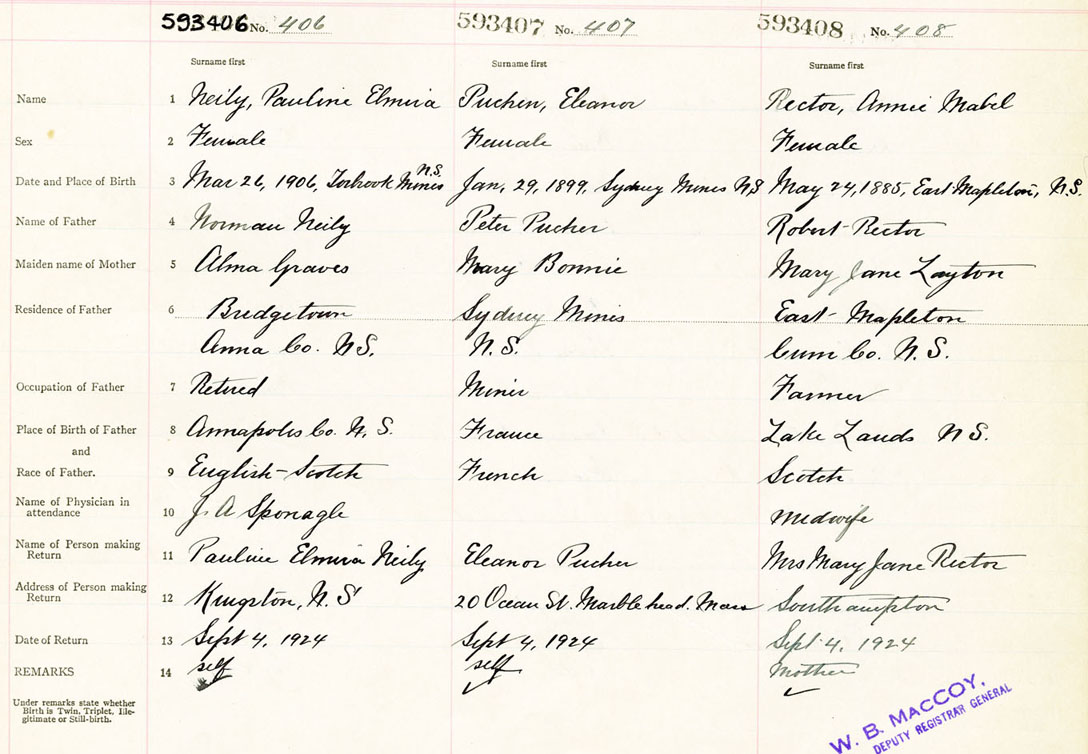 593406 No. 406 593407 No. 407 593408 No. 408
Surname first Surname first Surname first
Name 1 Neily, Pauline Elmira Pucher, Eleanor Rector, Annie Mabel
Sex 2 Female Female Female
Date and Place of Birth 3 Mar 26, 1906, Torbrook Mines N.S. Jan, 29, 1899, Sydney Mines NS May 24, 1885, East Mapleton, N.S.
Name of Father 4 Norman Neily Peter Pucher Robert Rector
Maiden name of Mother 5 Alma Graves Mary Bonnie Mary Jane Layton
Residence of Father 6 Bridgetown Sydney Mines East Mapleton
Anna Co. N.S. N.S. Cum Co. N.S.
Occupation of Father 7 Retired Miner Farmer
Place of Birth of Father 8 Annapolis Co. N.S. France Lake Lands N S.
and
Race of Father. 9 English-Scotch French Scotch
Name of Physician in
attendance 10 J. A Sponagle Midwife
Name of Person making
Return 11 Pauline Elmira Neily Eleanor Pucher Mrs Mary Jane Rector
Address of Person making
Return 12 Kingston, N.S 20 Ocean St. Marblehead. Mass Southampton
Date of Return 13 Sept 4, 1924 Sept 4, 1924 Sept 4, 1924
REMARKS 14 self self Mother
Under remarks state whether
Birth is Twin, Triplet, Ille-
gitimate or Still-birth.
W. B. MACCOY,
DEPUTY REGISTRAR GENERAL